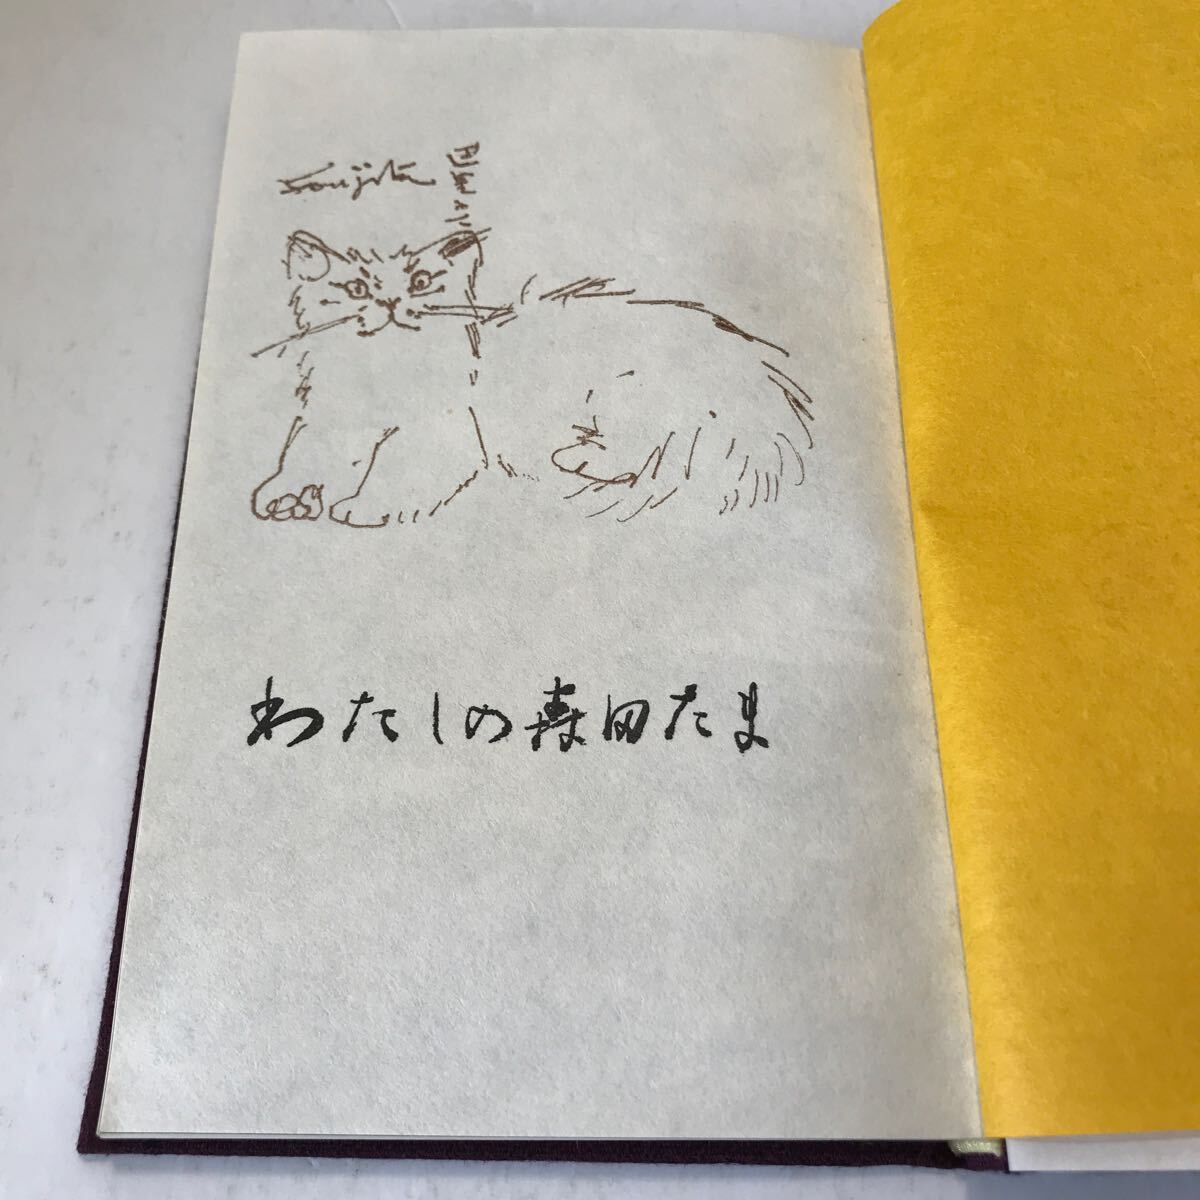 Foujita
わたしの森田たま